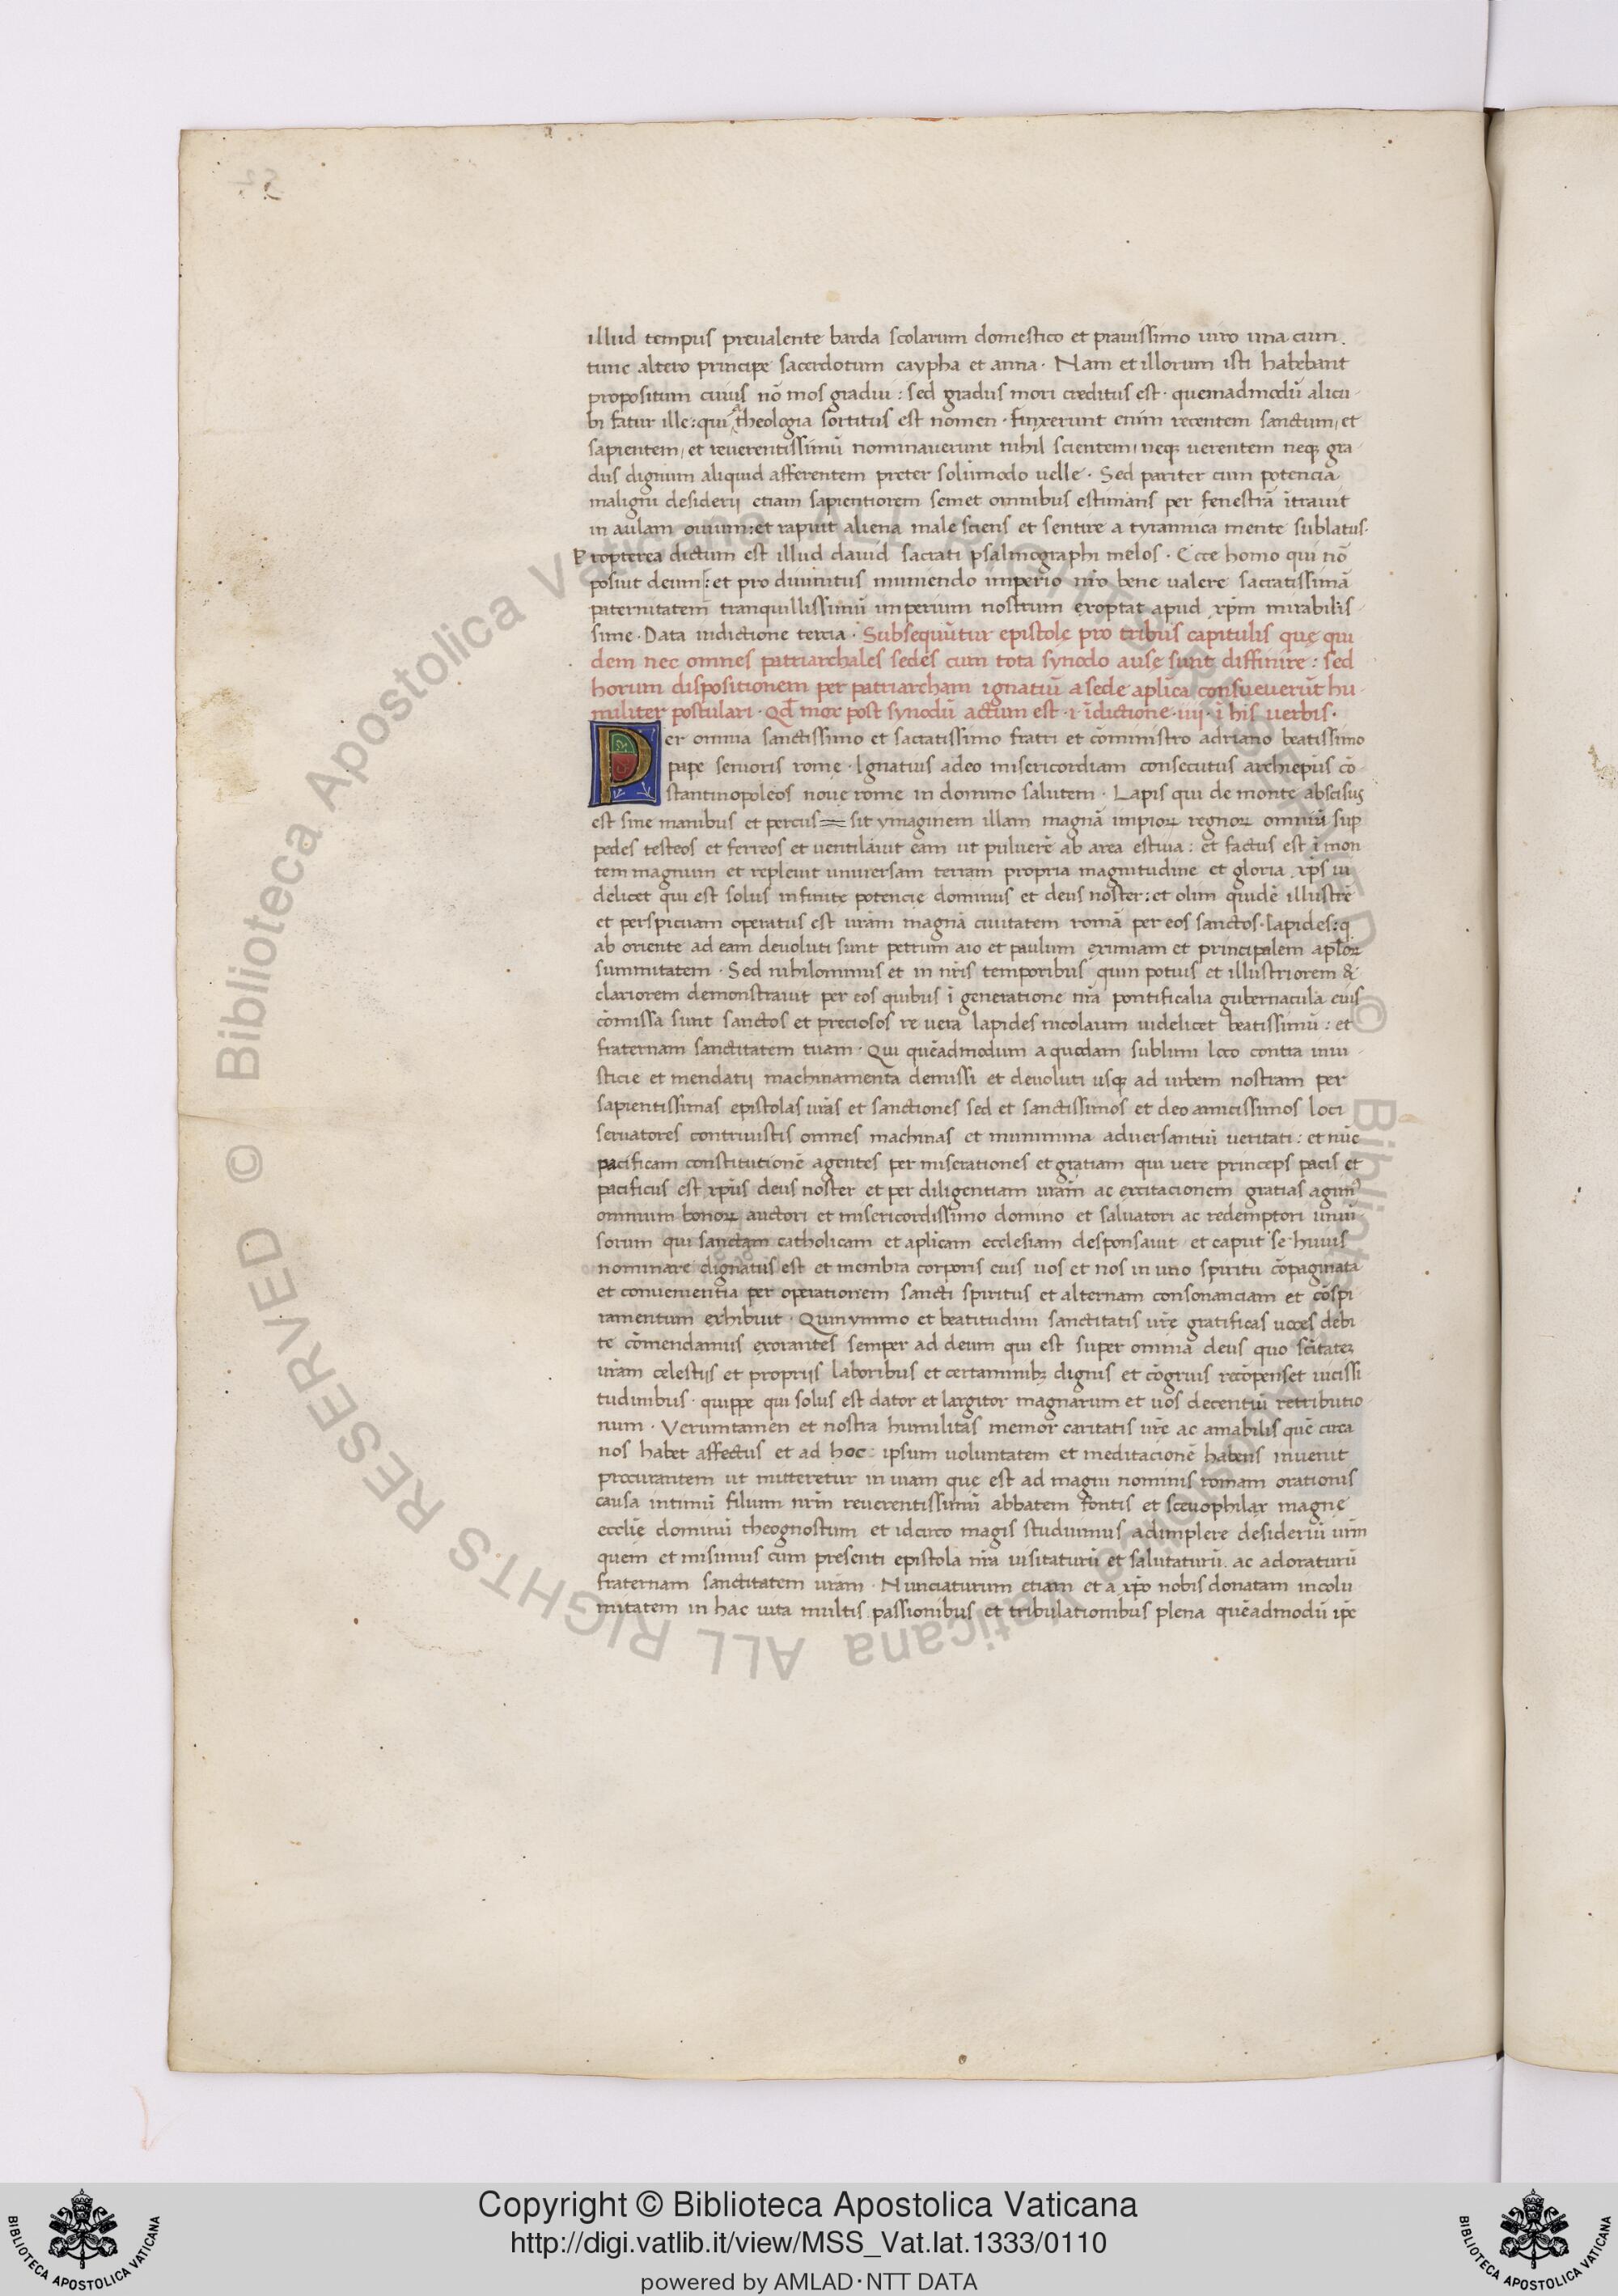 illud tempus preualente barda scolarum domestico et prauissimo uiro una cum
tunc altero principe sacerdotum caypha et anna · Nam et illorum isti habebant
propositum cuius nō mos gradui : sed gradus mori creditus est · quemadmodū alicu-
bi fatur ille : qui a theologia sortitus est nomen · finxerunt enim recentem sanctum, et
sapientem, et reuerentissimū nominauerunt nihil scientem, neqꝫ uerentem neqꝫ gra-
dus dignum aliquid afferentem preter solūmodo uelle · Sed pariter cum potencia
maligni desiderij etiam sapientiorem semet omnibus estimans per fenestrā ītrauit
in aulam ouium : et rapuit aliena male sciens et sentire a tyrannica mente sublatus ·
Propterea dictum est illud dauid sacrati psalmographi melos · Ecce homo qui nō
posiut deum : et pro diuinitus muniendo imperio nr̄o bene ualere sacratissimā
paternitatem tranquillissimū imperium nostrum exoptat apud xp̄m mirabilis-
sime · Data indictione tercia · Subsequūtur epistole pro tribus capitulis que qui
dem nec omnes patriarchales sedes cum tota synodo ause sunt diffinire : sed
horum dispositionem per patriarcham ignatiū a sede aplīca consueuerūt hu-
militer postulari · Qd̄ mox post synodū actum est · i · īdictione · iiij · ī his uerbis ·
Per omnia sanctissimo et sacratissimo fratri et cōministro adriano beatissimo
pape senioris rome · Ignatius a deo misericordiam consecutus archiepūs cō-
stantinopoleos noue rome in domino salutem · Lapis qui de monte abscisus
est sine manibus et percus sit ymaginem illam magnā impioꝝ regnoꝝ omniū sup
pedes testeos et ferreos et uentilauit eam ut puluerē ab area estiua : et factus est ī mon
tem magnum et repleuit uniuersam terram propria magnitudine et gloria xp̄s ui
delicet qui est solus infinite potencie dominus et deus noster : et olim quidē illustrē
et perspicuam operatus est urām magnā ciuitatem romā per eos sanctos · lapides : q
ab oriente ad eam deuoluti sunt petrum aio et paulum eximiam et principalem aplōꝝ
summitatem · Sed nihilominus et in nr̄is temporibus quin potius et illustriorem &
clariorem demonstrauit per eos quibus ī generatione nr̄a pontificalia gubernacula eius
cōmissa sunt sanctos et preciosos re uera lapides nicolaum uidelicet beatissimū : et
fraternam sanctitatem tuam · Qui quēadmodum a quodam sublimi loco contra iniu-
sticie et mendatij machinamenta demissi et deuoluti usqꝫ ad urbem nostram per
sapientissimas epistolas urās et sanctiones sed et sanctissimos et deo amicissimos loci
seruatores contriuistis omnes machinas et munimina aduersantiū ueritati : et nūc
pacificam constitutionē agentes per miserationes et gratiam qui uere princeps pacis et
pacificus est xp̄us deus noster et per diligentiam urām ac excitacionem gratias agimꝰ
omnium bonoꝝ auctori et misericordissimo domino et saluatori ac redemptori uniū-
sorum qui sanctam catholicam et aplīcam ecclesiam desponsauit et caput se huius
nominare dignatus est et membra corporis eius uos et nos in uno spiritu cōpaginata
et conuenientia per operationem sancti spiritus et alternam consonanciam et cōspi-
ramentum exhibuit · Quin ymmo et beatitudini sanctitatis ur̄e gratificas uoces debi
te cōmendamus exorantes semper ad deum qui est super omnia deus quo sc̄itateꝫ
urām celestijs et proprijs laboribus et certaminibꝫ dignis et cōgruis recōpenset uicissi
tudinibus · quippe qui solus est dator et largitor magnarum et uos decentiū retributio-
num · Verumtamen et nostra humilitas memor caritatis ur̄e ac amabilis quē circa
nos habet affectus et ad hoc : ipsum uoluntatem et meditacionē habens inuenit
procurantem ut mitteretur in uiam que est ad magni nominis romam orationis
causa intimū filium nr̄m reuerentissimū abbatem fontis et sceuophilax magne
ecclīe dominū theognostum et idcirco magis studuimus adimplere desideriū ur̄m
quem et misimus cum presenti epistola nr̄a uisitaturū et salutaturū ac adoraturū
fraternam sanctitatem urām · Nunciaturum etiam et a xp̄o nobis donatam incolu
mitatem in hac uita multis passionibus et tribulationibus plena quēadmodū ip̄e
© Biblioteca Apostolica Vaticana ALL RIGHTS RESERVED
© Biblioteca Apostolica Vaticana ALL RIGHTS RESERVED
BIBLIOTECA APOSTOLICA VATICANA
Copyright © Biblioteca Apostolica Vaticana
http://digi.vatlib.it/view/MSS_Vat.lat.1333/0110
powered by AMLAD·NTT DATA
BIBLIOTECA APOSTOLICA VATICANA